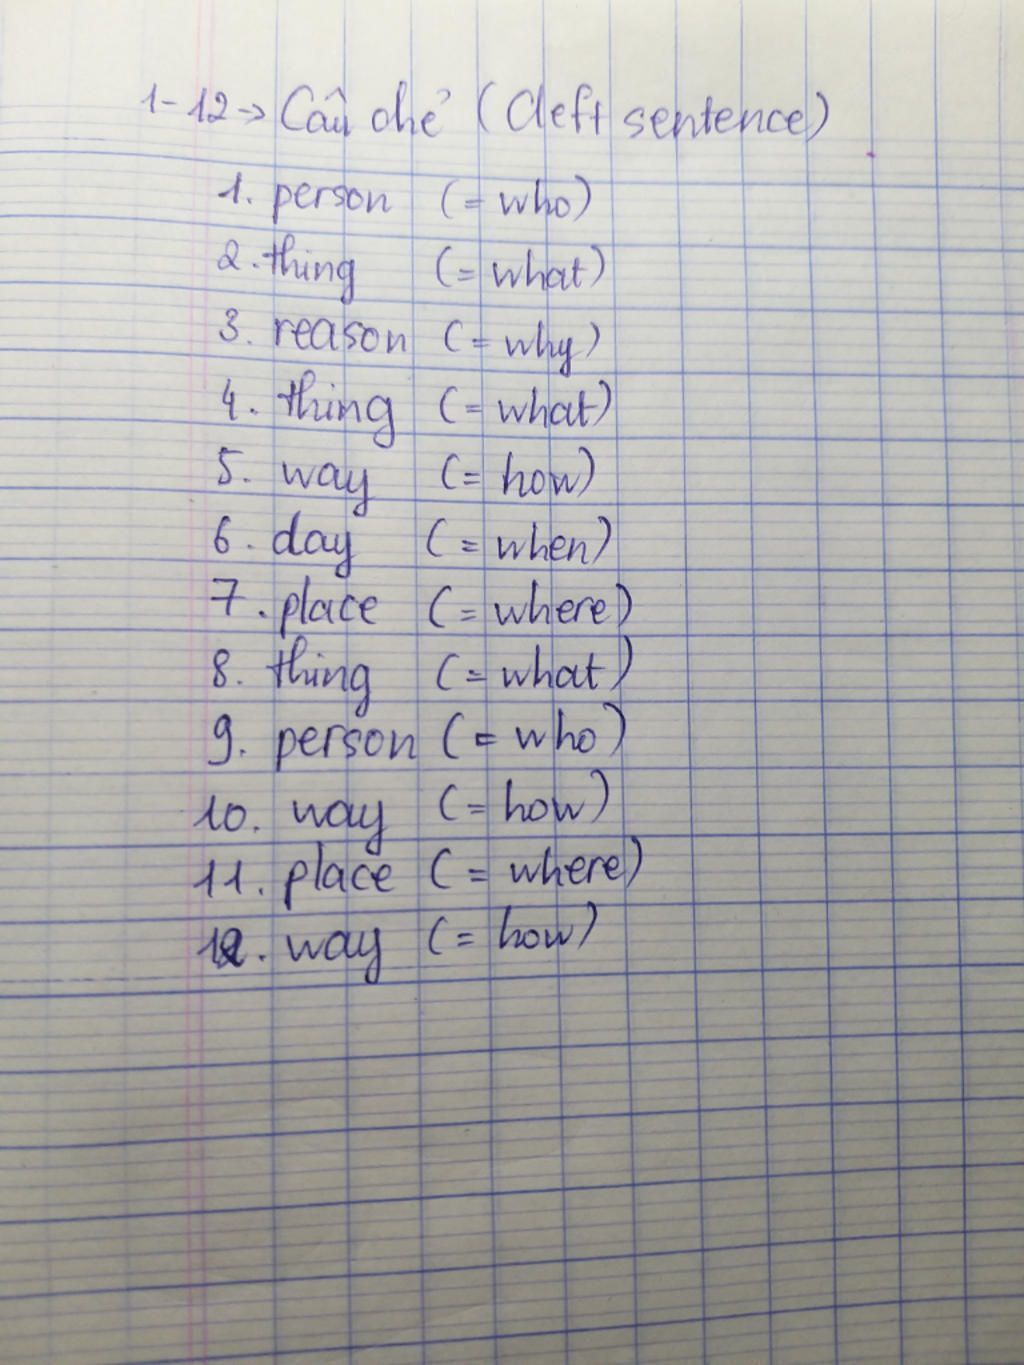 1-12→ Câu chẻ (Cleft sentence)
1. person (= who)
2. thing (= what)
3. reason (= why)
4. thing (= what)
5. way (= how)
6. day (= when)
7. place (= where)
8. thing (= what)
9. person (= who)
10. way (= how)
11. place (= where)
12. way (= how)